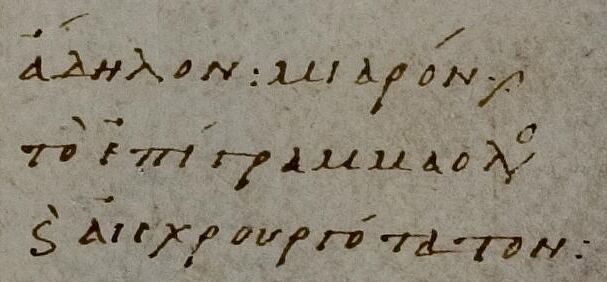 ἄδηλον: μιαρόν·
τὸ ἐπίγραμμα ὅλο
ϗ̀ αἰσχρουργότατον: